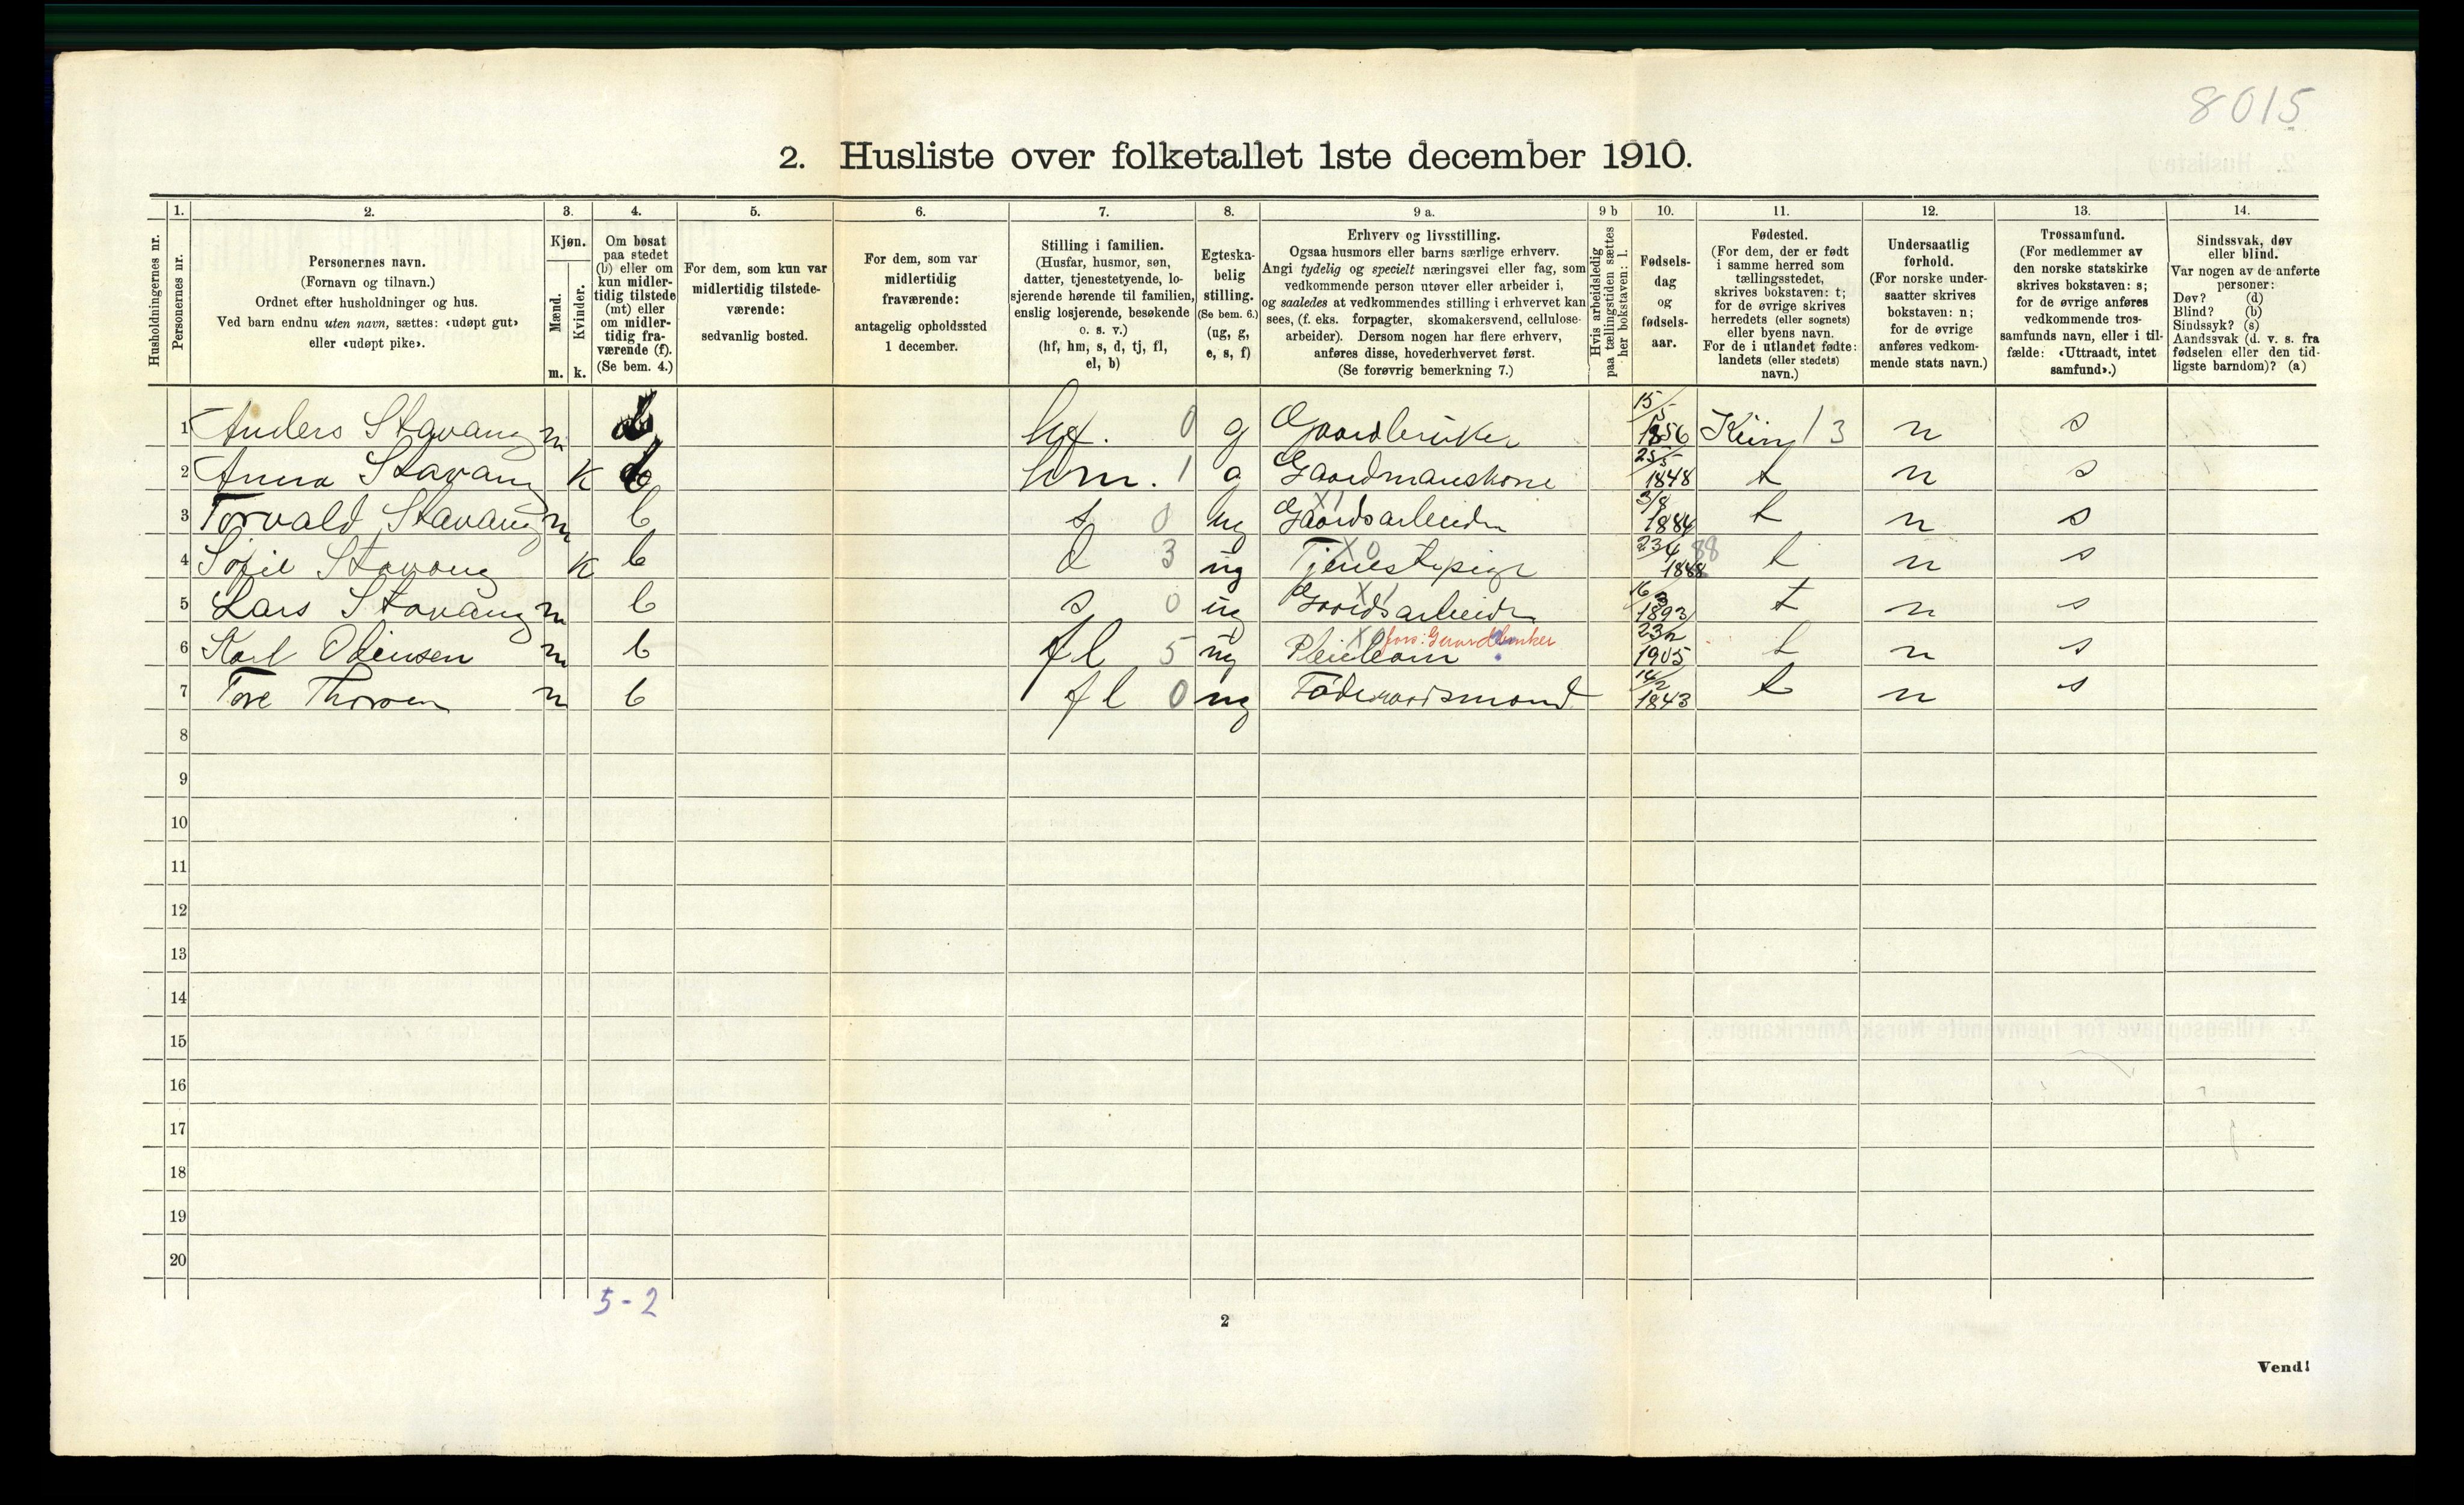 8015
2. Husliste over folketallet 1ste december 1910.
Husholdningernes nr.
1. Personernes nr.
2. Personernes navn.
(Fornavn og tilnavn.)
Ordnet efter husholdninger og hus.
Ved barn endnu uten navn, sættes: «udøpt gut»
eller «udøpt pike».
3. Kjøn.
Mænd. Kvinder.
m. k.
4. Om bosat
paa stedet
(b) eller om
kun midler-
tidig tilstede
(mt) eller
om midler-
tidig fra-
værende (f).
(Se bem. 4.)
5. For dem, som kun var
midlertidig tilstede-
værende:
sedvanlig bosted.
6. For dem, som var
midlertidig
fraværende:
antagelig opholdssted
1 december.
7. Stilling i familien.
(Husfar, husmor, søn,
datter, tjenestetyende, lo-
sjerende hørende til familien,
enslig losjerende, besøkende
o. s. v.)
(hf, hm, s, d, tj, fl,
el, b)
8. Egteska-
belig
stilling.
(Se bem. 6.)
(ug, g,
e, s, f)
9 a. Erhverv og livsstilling.
Ogsaa husmors eller barns særlige erhverv.
Angi tydelig og specielt næringsvei eller fag, som
vedkommende person utøver eller arbeider i,
og saaledes at vedkommendes stilling i erhvervet kan
sees, (f. eks. forpagter, skomakersvend, cellulose-
arbeider). Dersom nogen har flere erhverv,
anføres disse, hovederhvervet først.
(Se forøvrig bemerkning 7.)
9 b Hvis arbeidsledig
paa tællingstiden sættes
her bokstaven: l.
10. Fødsels-
dag
og
fødsels-
aar.
11. Fødested.
(For dem, der er født
i samme herred som
tællingsstedet,
skrives bokstaven: t;
for de øvrige skrives
herredets (eller sognets)
eller byens navn.
For de i utlandet fødte:
landets (eller stedets)
navn.)
12. Undersaatlig
forhold.
(For norske under-
saatter skrives
bokstaven: n;
for de øvrige
anføres vedkom-
mende stats navn.)
13. Trossamfund.
(For medlemmer av
den norske statskirke
skrives bokstaven: s;
for de øvrige anføres
vedkommende tros-
samfunds navn, eller i til-
fælde: «Uttraadt, intet
samfund».)
14. Sindssvak, døv
eller blind.
Var nogen av de anførte
personer:
Døv? (d)
Blind? (b)
Sindssyk? (s)
Aandssvak (d. v. s. fra
fødselen eller den tid-
ligste barndom)? (a)
1 Anders Stavang m b hf. 0 g Gaardbruker 15/5 1856 Kinn 13 n s
2 Anna Stavang k b hm. 1 g Gaardmanskone 25/5 1848 t n s
3 Torvald Stavang m b s 0 ug Gaardsarbeider X1 3/8 1884 t n s
4 Sofie Stavang k b d 3 ug Tjenestepige X0 23/4 1888 88 t n s
5 Lars Stavang m b s 0 ug Gaardsarbeider X1 16/3 1893 t n s
6 Karl Odensen m b fl 5 ug Pleiebarn X0 fors: Gaardbruker 23/2 1905 t n s
7 Tore Thorsen m b fl 0 ug Føderaadsmand 14/2 1843 t n s
8
9
10
11
12
13
14
15
16
17
18
19
20
5-2
2
Vend!